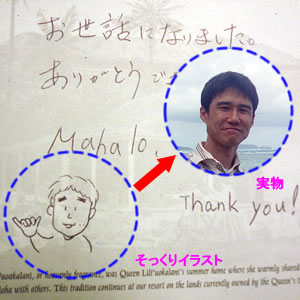 お世話になりました。
ありがとうご
Mahalo.
実物
Thank you!
そっくりイラスト
was Queen Lili'uokalani's summer home where she warmly shared
aloha with others. This tradition continues at our resort on the lands currently owned by the Queen's